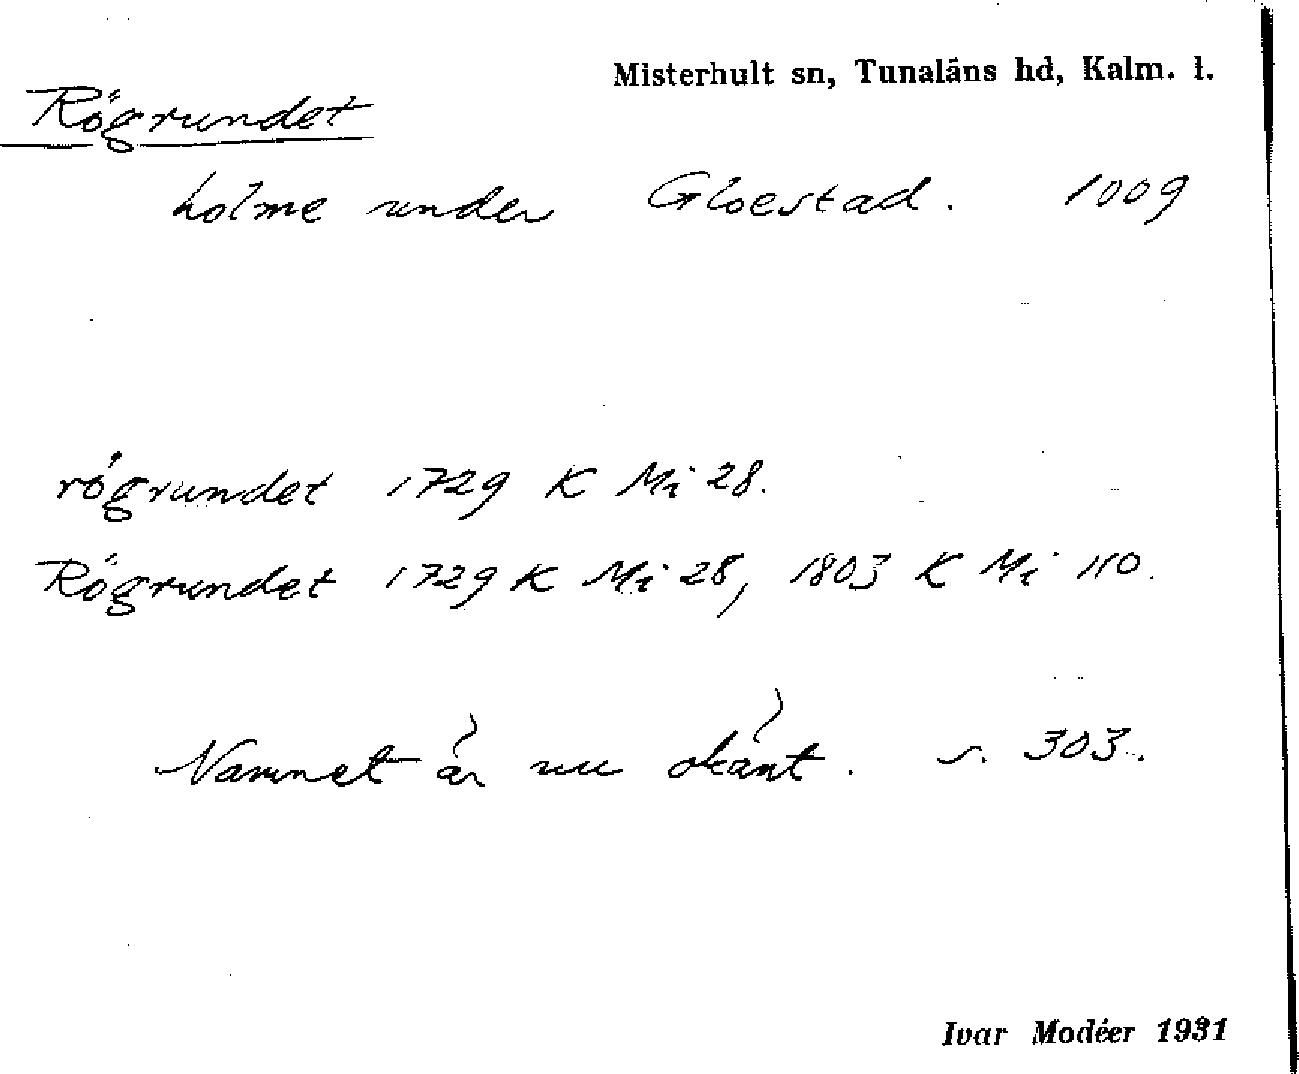 Misterhult sn, Tunaläns hd, Kalm. l.
Rögrundet
holme under Gloestad. 1009
rögrundet 1729 K Mi 28.
Rögrundet 1729 K Mi 28, 1803 K Mi 110.
Namnet är nu okänt. s. 303.
Ivar Modéer 1931